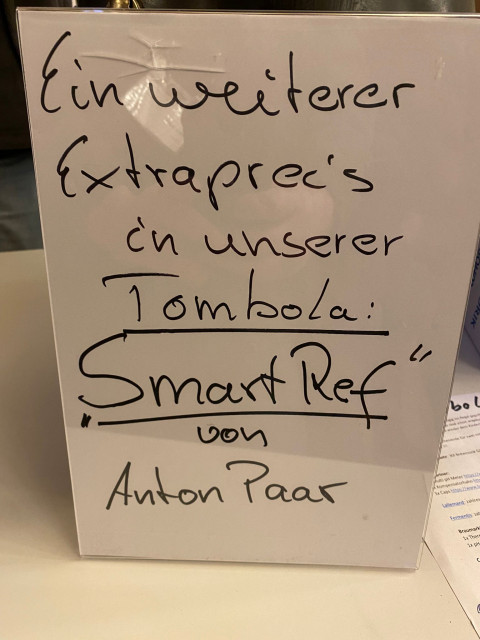 Ein weiterer
Extrapreis
in unserer
Tombola:
„Smart Ref“
von
Anton Paar